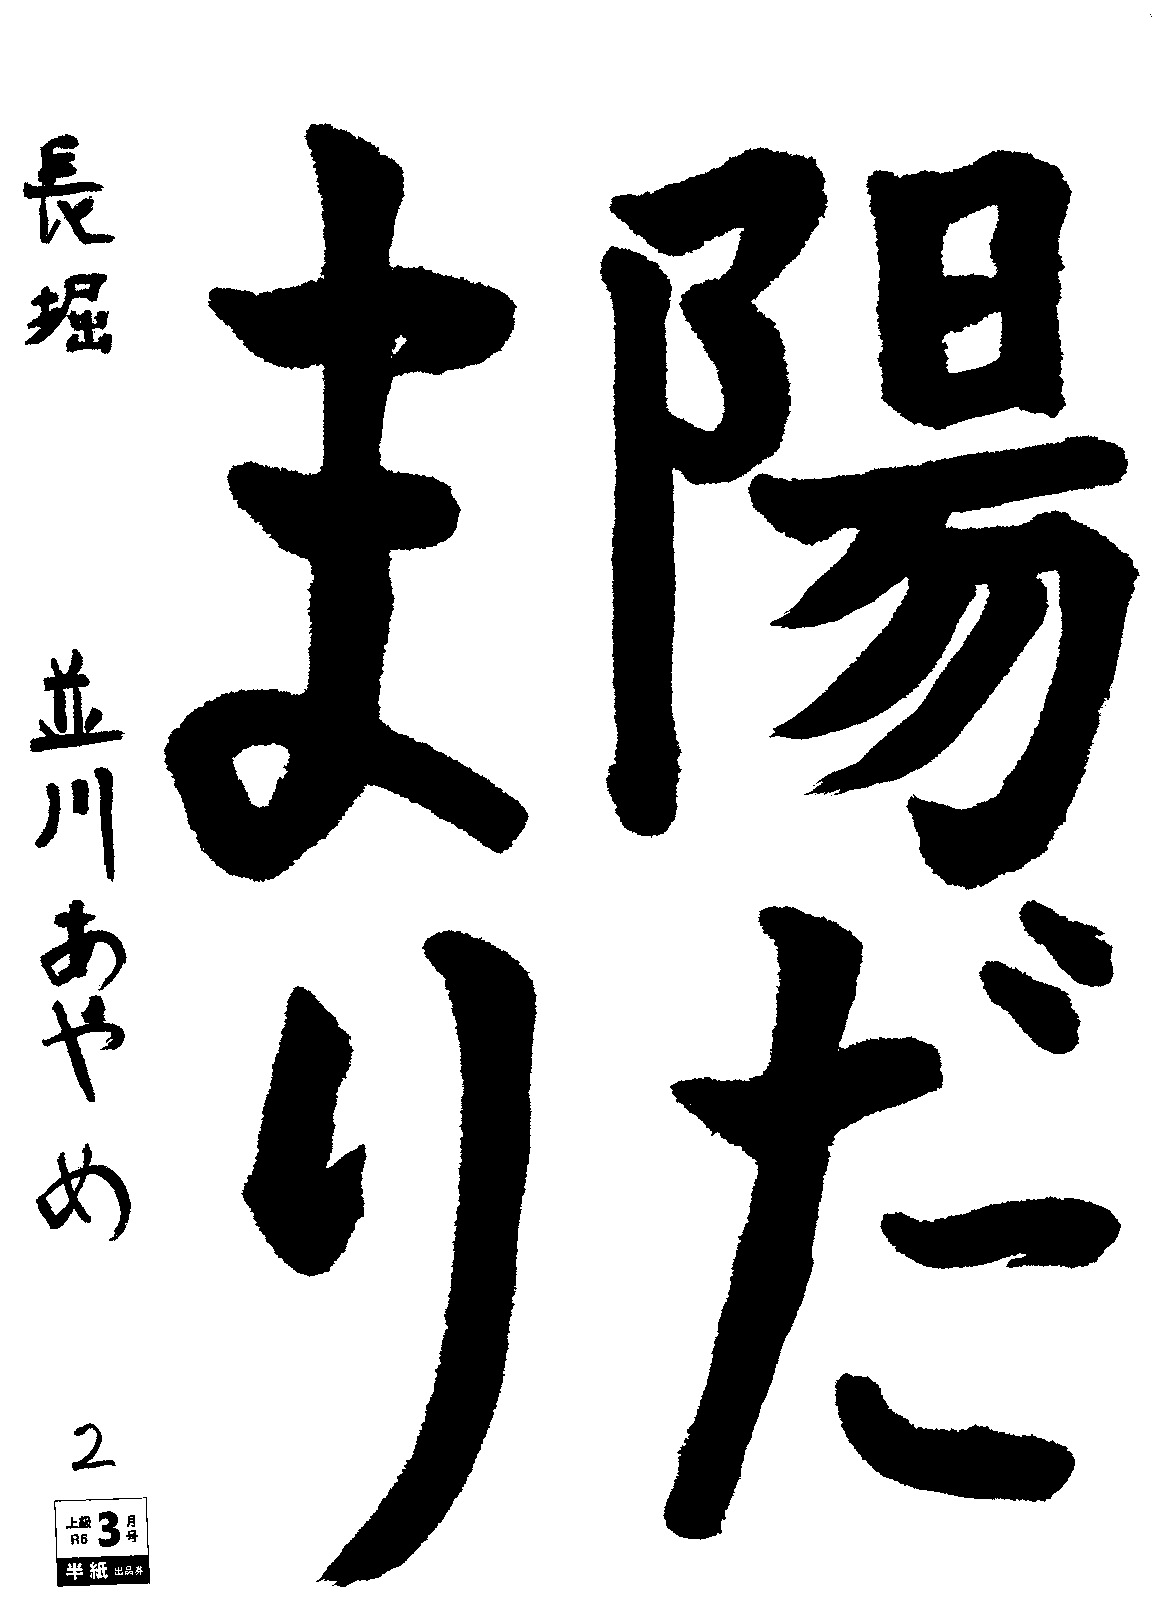 陽だ
まり
長堀 並川あやめ 2
上級 R6 3月号
半紙 出品券